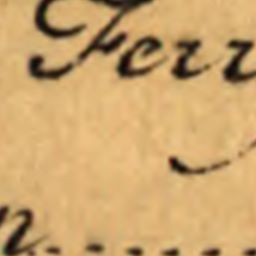 Ferr
n